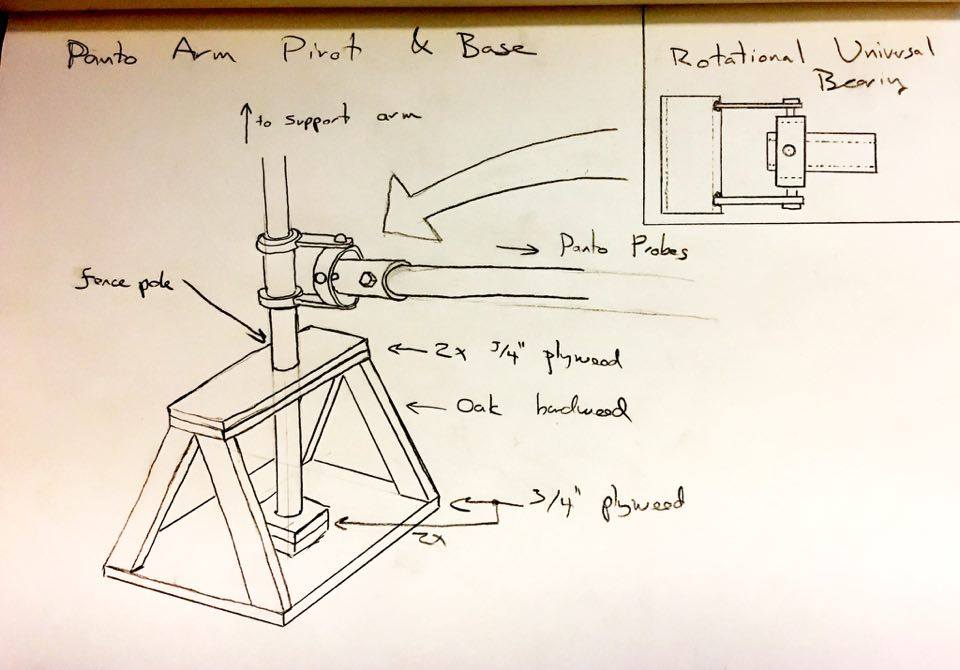 Panto Arm Pivot & Base
Rotational Universal
Bearing
to support arm
Panto Probes
fence pole
2x 3/4" plywood
Oak hardwood
3/4" plywood
2x